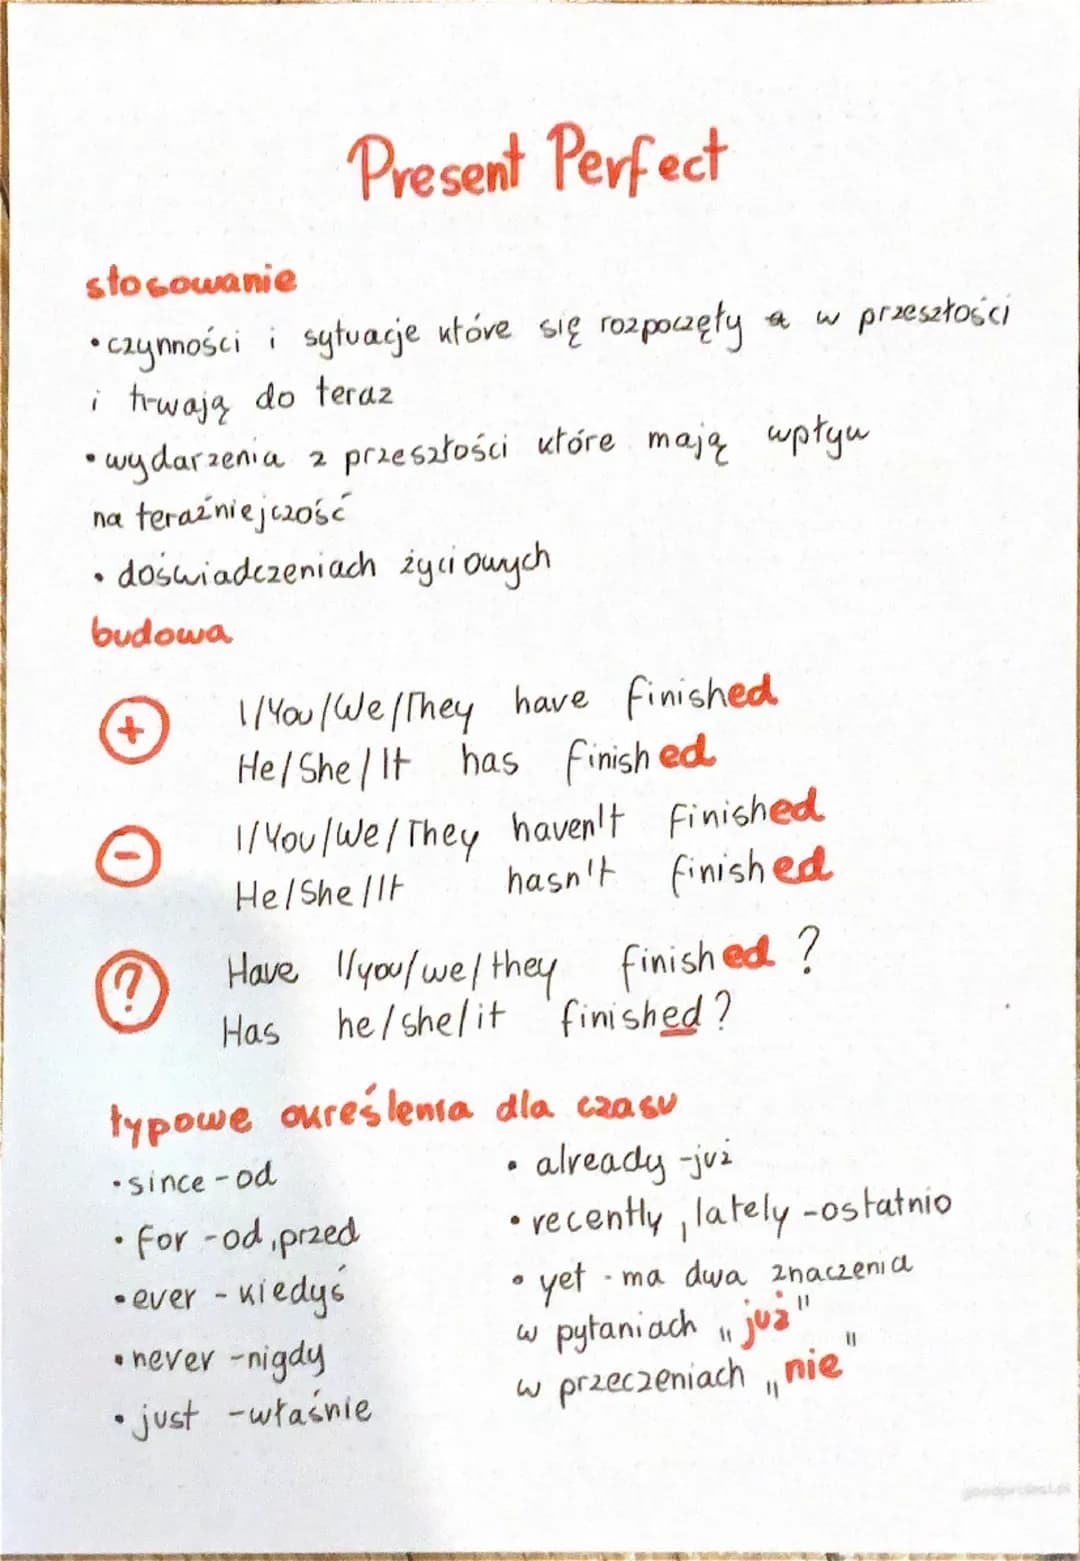 Present Perfect
stosowanie
•czynności i sytuacje które się rozpoczęły w przeszłości
i trwają do teraz
•wydarzenia z przeszłości które mają wpływ
na teraźniejczość
• doświadczeniach życiowych
budowa
+ I/You/We/They have finished
He/She/It has finished
- I/You/We/They haven't finished
He/She/It hasn't finished
? Have I/you/we/they finished?
Has he/she/it finished?
typowe określenia dla czasu
•since - od
• for - od, przed
•ever - kiedyś
•never - nigdy
•just - właśnie
• already - już
•recently, lately - ostatnio
• yet - ma dwa znaczenia
w pytaniach „już"
w przeczeniach „nie"